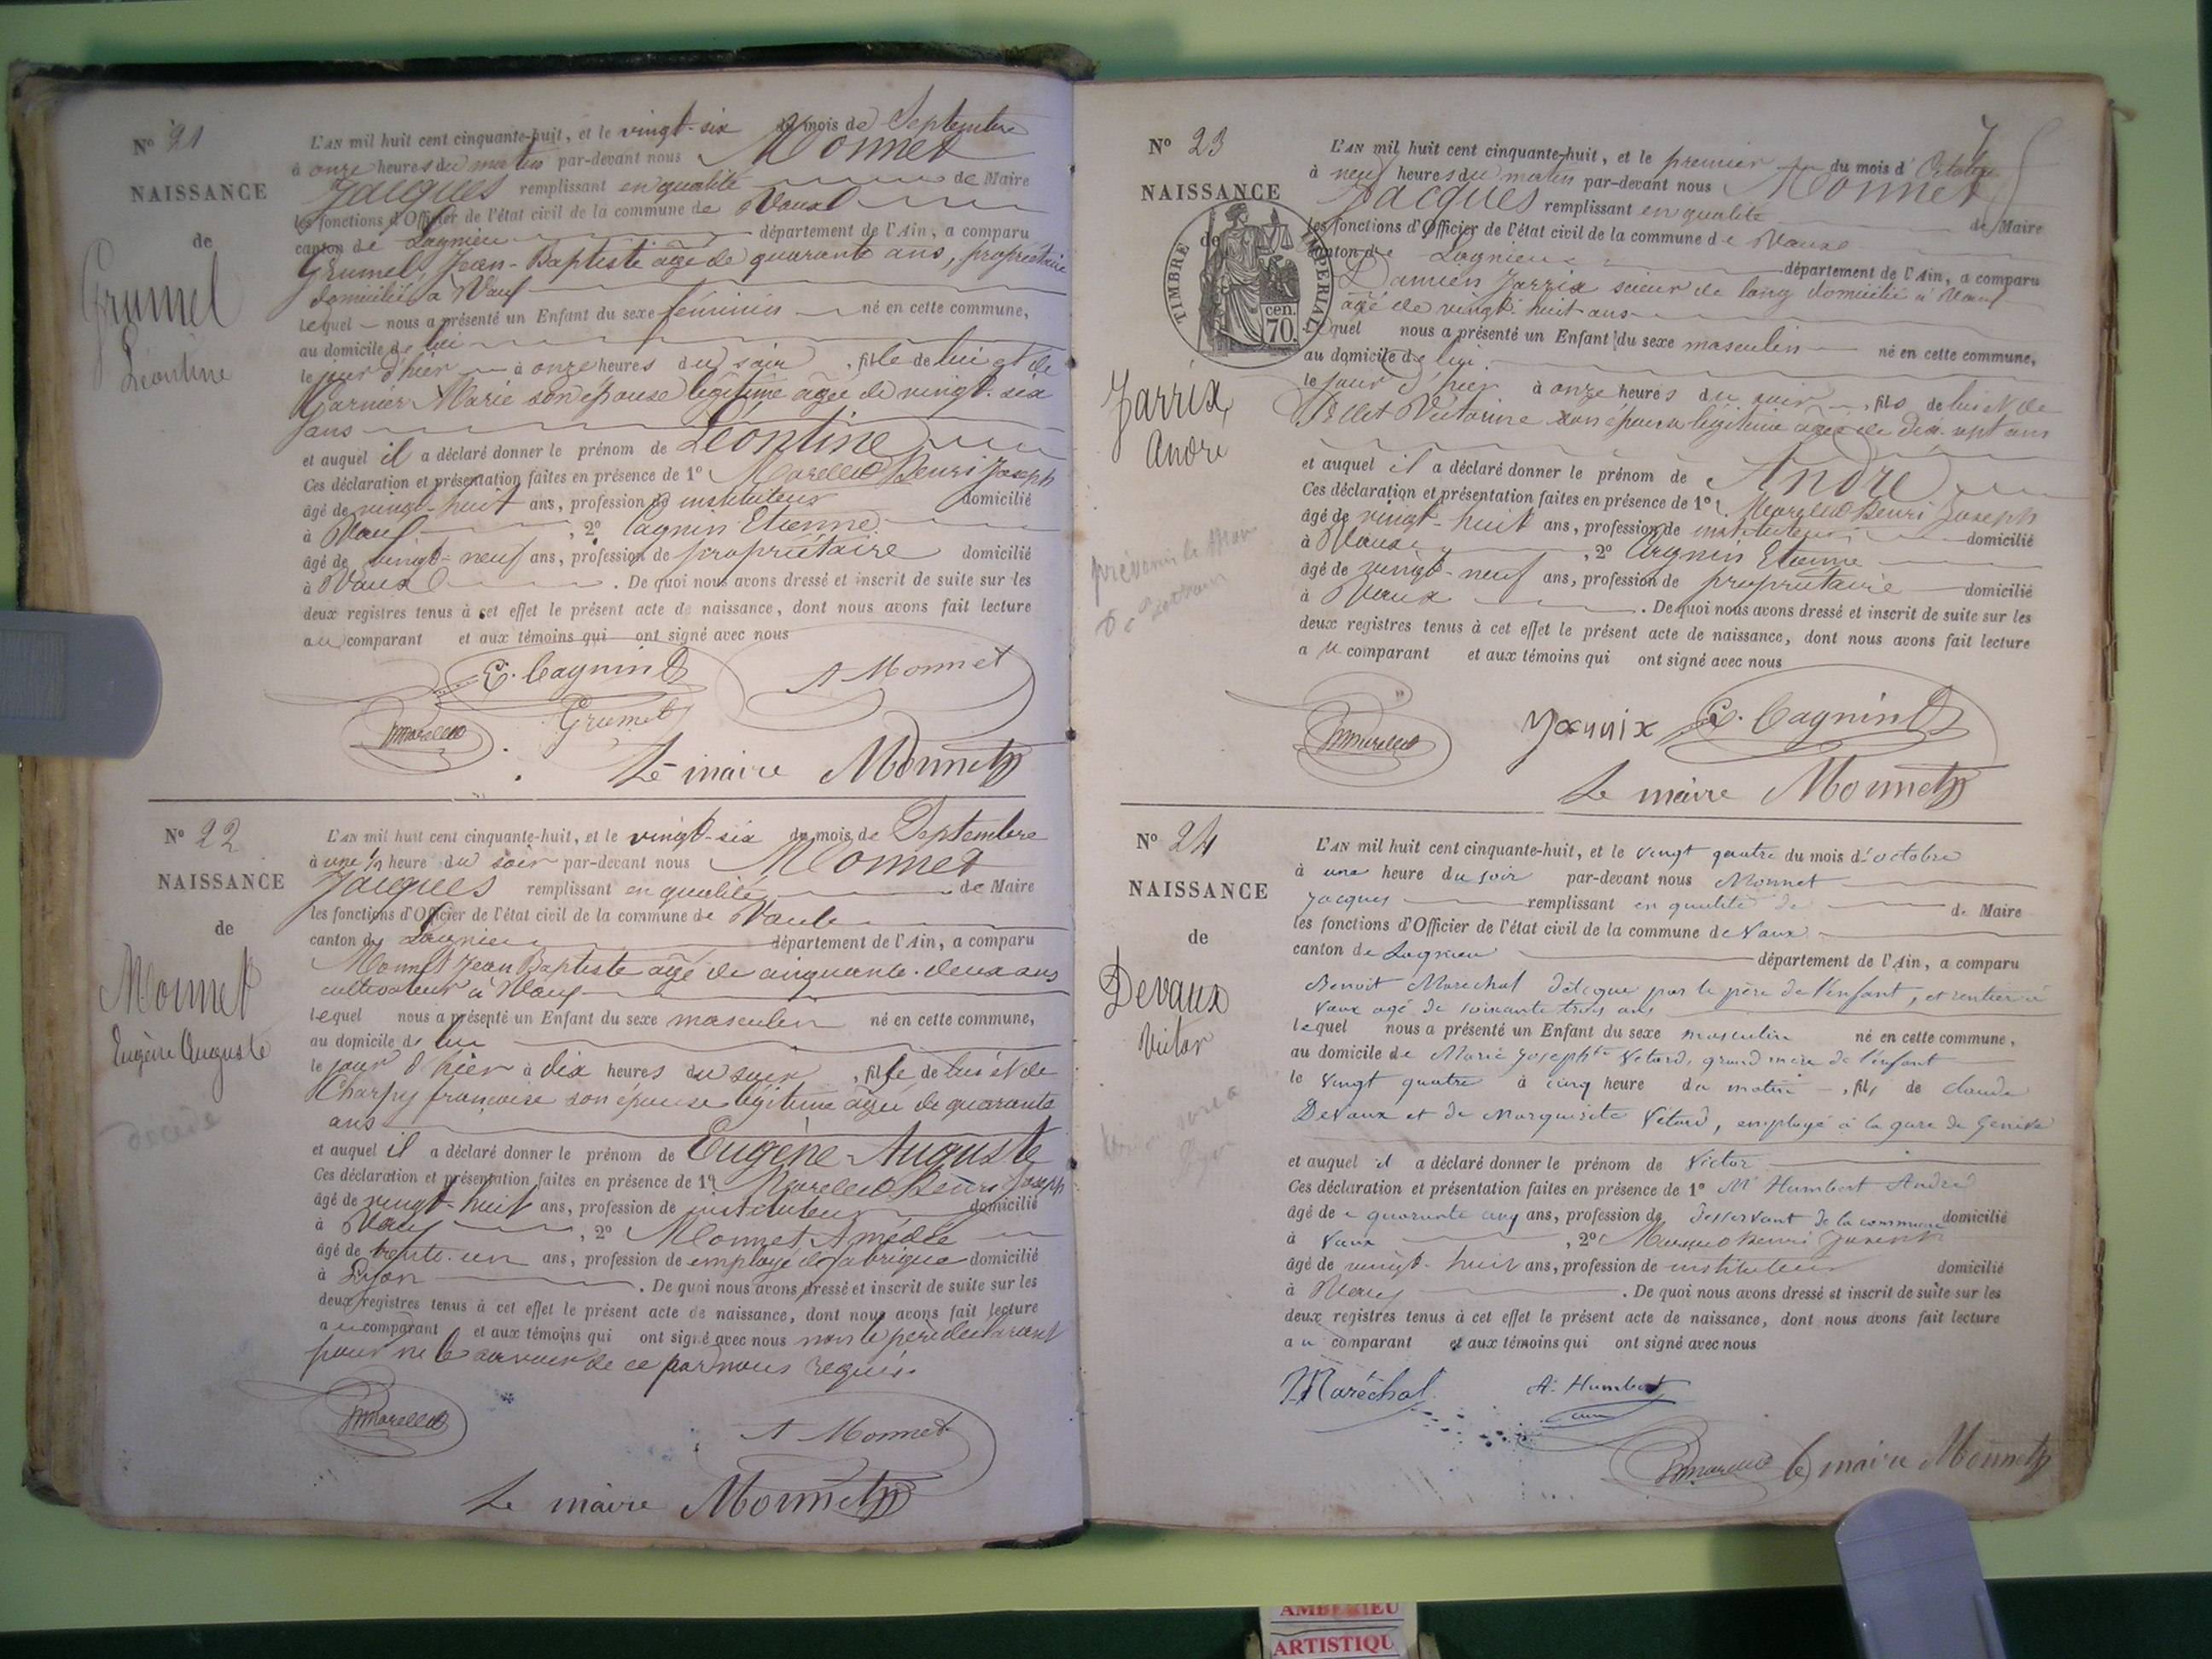 N° 21
NAISSANCE
de
Grumel
Léontine
L'AN mil huit cent cinquante-huit, et le vingt-six du mois de Septembre
à onze heures du matin par-devant nous Monnet
Jacques remplissant en qualité de Maire
les fonctions d'Officier de l'état civil de la commune de Vaux
canton de Lagnieu département de l'Ain, a comparu
Grumel, Jean-Baptiste âgé de quarante ans, propriétaire
domicilié à Vaux
lequel nous a présenté un Enfant du sexe féminin né en cette commune,
au domicile de lui
le jour d'hier à onze heures du soir, fille de lui et de
Garnier Marie son épouse légitime âgée de vingt-six
ans
et auquel il a déclaré donner le prénom de Léontine
Ces déclaration et présentation faites en présence de 1° Henri Joseph
âgé de vingt-huit ans, profession de instituteur domicilié
à Vaux, 2° Cagnin Etienne
âgé de vingt-neuf ans, profession de propriétaire domicilié
à Vaux. De quoi nous avons dressé et inscrit de suite sur les
deux registres tenus à cet effet le présent acte de naissance, dont nous avons fait lecture
au comparant et aux témoins qui ont signé avec nous
E. Cagnin A Monnet
Grumel
Le maire Monnet
N° 22
NAISSANCE
de
Monnet
Eugène Auguste
décédé
L'AN mil huit cent cinquante-huit, et le vingt-six du mois de Septembre
à une 1/2 heure du soir par-devant nous Monnet
Jacques remplissant en qualité de Maire
les fonctions d'Officier de l'état civil de la commune de Vaux
canton de Lagnieu département de l'Ain, a comparu
Monnet Jean Baptiste âgé de cinquante-deux ans
cultivateur à Vaux
lequel nous a présenté un Enfant du sexe masculin né en cette commune,
au domicile de lui
le jour d'hier à dix heures du soir, fils de lui et de
Charpy françoise son épouse légitime âgée de quarante
ans
et auquel il a déclaré donner le prénom de Eugène-Auguste
Ces déclaration et présentation faites en présence de 1° Henri Joseph
âgé de vingt-huit ans, profession de instituteur domicilié
à Vaux, 2° Monnet Amédée
âgé de trente-un ans, profession de employé de fabrique domicilié
à Lyon. De quoi nous avons dressé et inscrit de suite sur les
deux registres tenus à cet effet le présent acte de naissance, dont nous avons fait lecture
au comparant et aux témoins qui ont signé avec nous non le père déclarant
pour ne le savoir de ce par nous requis.
A Monnet
Le maire Monnet
7
N° 23
NAISSANCE
de
TIMBRE IMPERIAL
70 cen.
Jarrix
André
L'AN mil huit cent cinquante-huit, et le premier du mois d'Octobre
à neuf heures du matin par-devant nous Monnet
Jacques remplissant en qualité de Maire
les fonctions d'Officier de l'état civil de la commune de Vaux
canton de Lagnieu département de l'Ain, a comparu
Damien Jarrix scieur de long domicilié à Vaux
âgé de vingt-huit ans
lequel nous a présenté un Enfant du sexe masculin né en cette commune,
au domicile de lui
le jour d'hier à onze heures du soir, fils de lui et de
Victorine son épouse légitime âgée de dix-sept ans
et auquel il a déclaré donner le prénom de André
Ces déclaration et présentation faites en présence de 1° Henri Joseph
âgé de vingt-huit ans, profession de instituteur domicilié
à Vaux, 2° Cagnin Etienne
âgé de vingt-neuf ans, profession de propriétaire domicilié
à Vaux. De quoi nous avons dressé et inscrit de suite sur les
deux registres tenus à cet effet le présent acte de naissance, dont nous avons fait lecture
au comparant et aux témoins qui ont signé avec nous
Jarrix E. Cagnin
Le maire Monnet
N° 24
NAISSANCE
de
Devaux
Victor
L'AN mil huit cent cinquante-huit, et le vingt quatre du mois d'octobre
à une heure du soir par-devant nous Monnet
Jacques remplissant en qualité de de Maire
les fonctions d'Officier de l'état civil de la commune de Vaux
canton de Lagnieu département de l'Ain, a comparu
Benoit Marechal délégué par le père de l'enfant, et rentier à
Vaux agé de soixante trois ans
lequel nous a présenté un Enfant du sexe masculin né en cette commune,
au domicile de Marie Josephte Vétard, grand mère de l'enfant
le vingt quatre à cinq heure du matin, fils de Claude
Devaux et de Marguerite Vétard, employé à la gare de Genève
et auquel il a déclaré donner le prénom de Victor
Ces déclaration et présentation faites en présence de 1° Mr Humbert André
âgé de quarante cinq ans, profession de desservant de la commune domicilié
à Vaux, 2° Henri Joseph
âgé de vingt-huit ans, profession de instituteur domicilié
à Vaux. De quoi nous avons dressé et inscrit de suite sur les
deux registres tenus à cet effet le présent acte de naissance, dont nous avons fait lecture
au comparant et aux témoins qui ont signé avec nous
Maréchal A. Humbert
le maire Monnet
AMBERIEU
ARTISTIQU